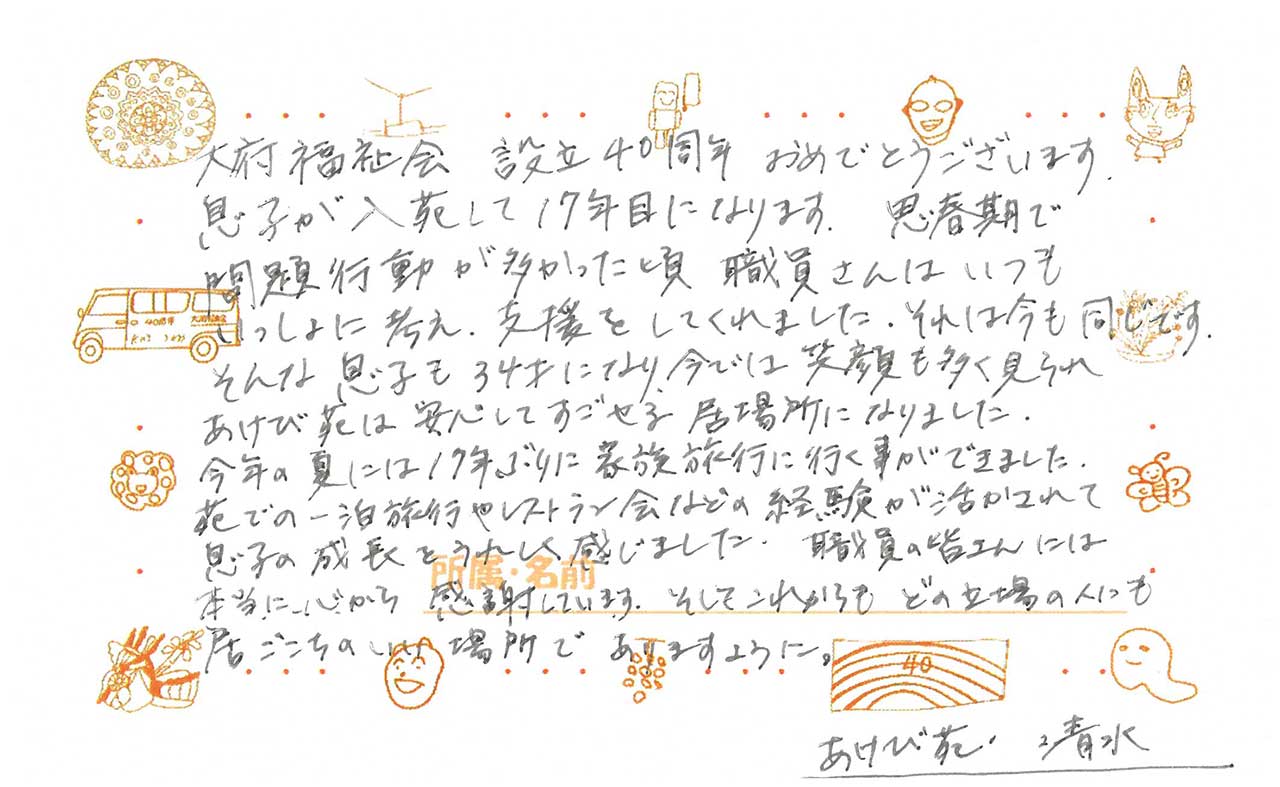 大府福祉会 設立40周年 おめでとうございます.
息子が入苑して17年目になります. 思春期で
問題行動が多かった頃 職員さんは いつも
いっしょに 考え. 支援をしてくれました. それは今も同じです.
そんな 息子も 34才になり, 今では 笑顔も多く見られ
あけび苑は 安心してすごせる 居場所になりました.
今年の夏には17年ぶりに 家族旅行に行く事ができました.
苑での一泊旅行やレストラン会などの 経験が活かされて
息子の成長をうれしく感じました. 職員の皆さんには
所属・名前
本当に心から 感謝しています. そしてこれからも どの立場の人にも
居ごこちのいい 場所で ありますように。
40
あけび苑. 清水
40周年